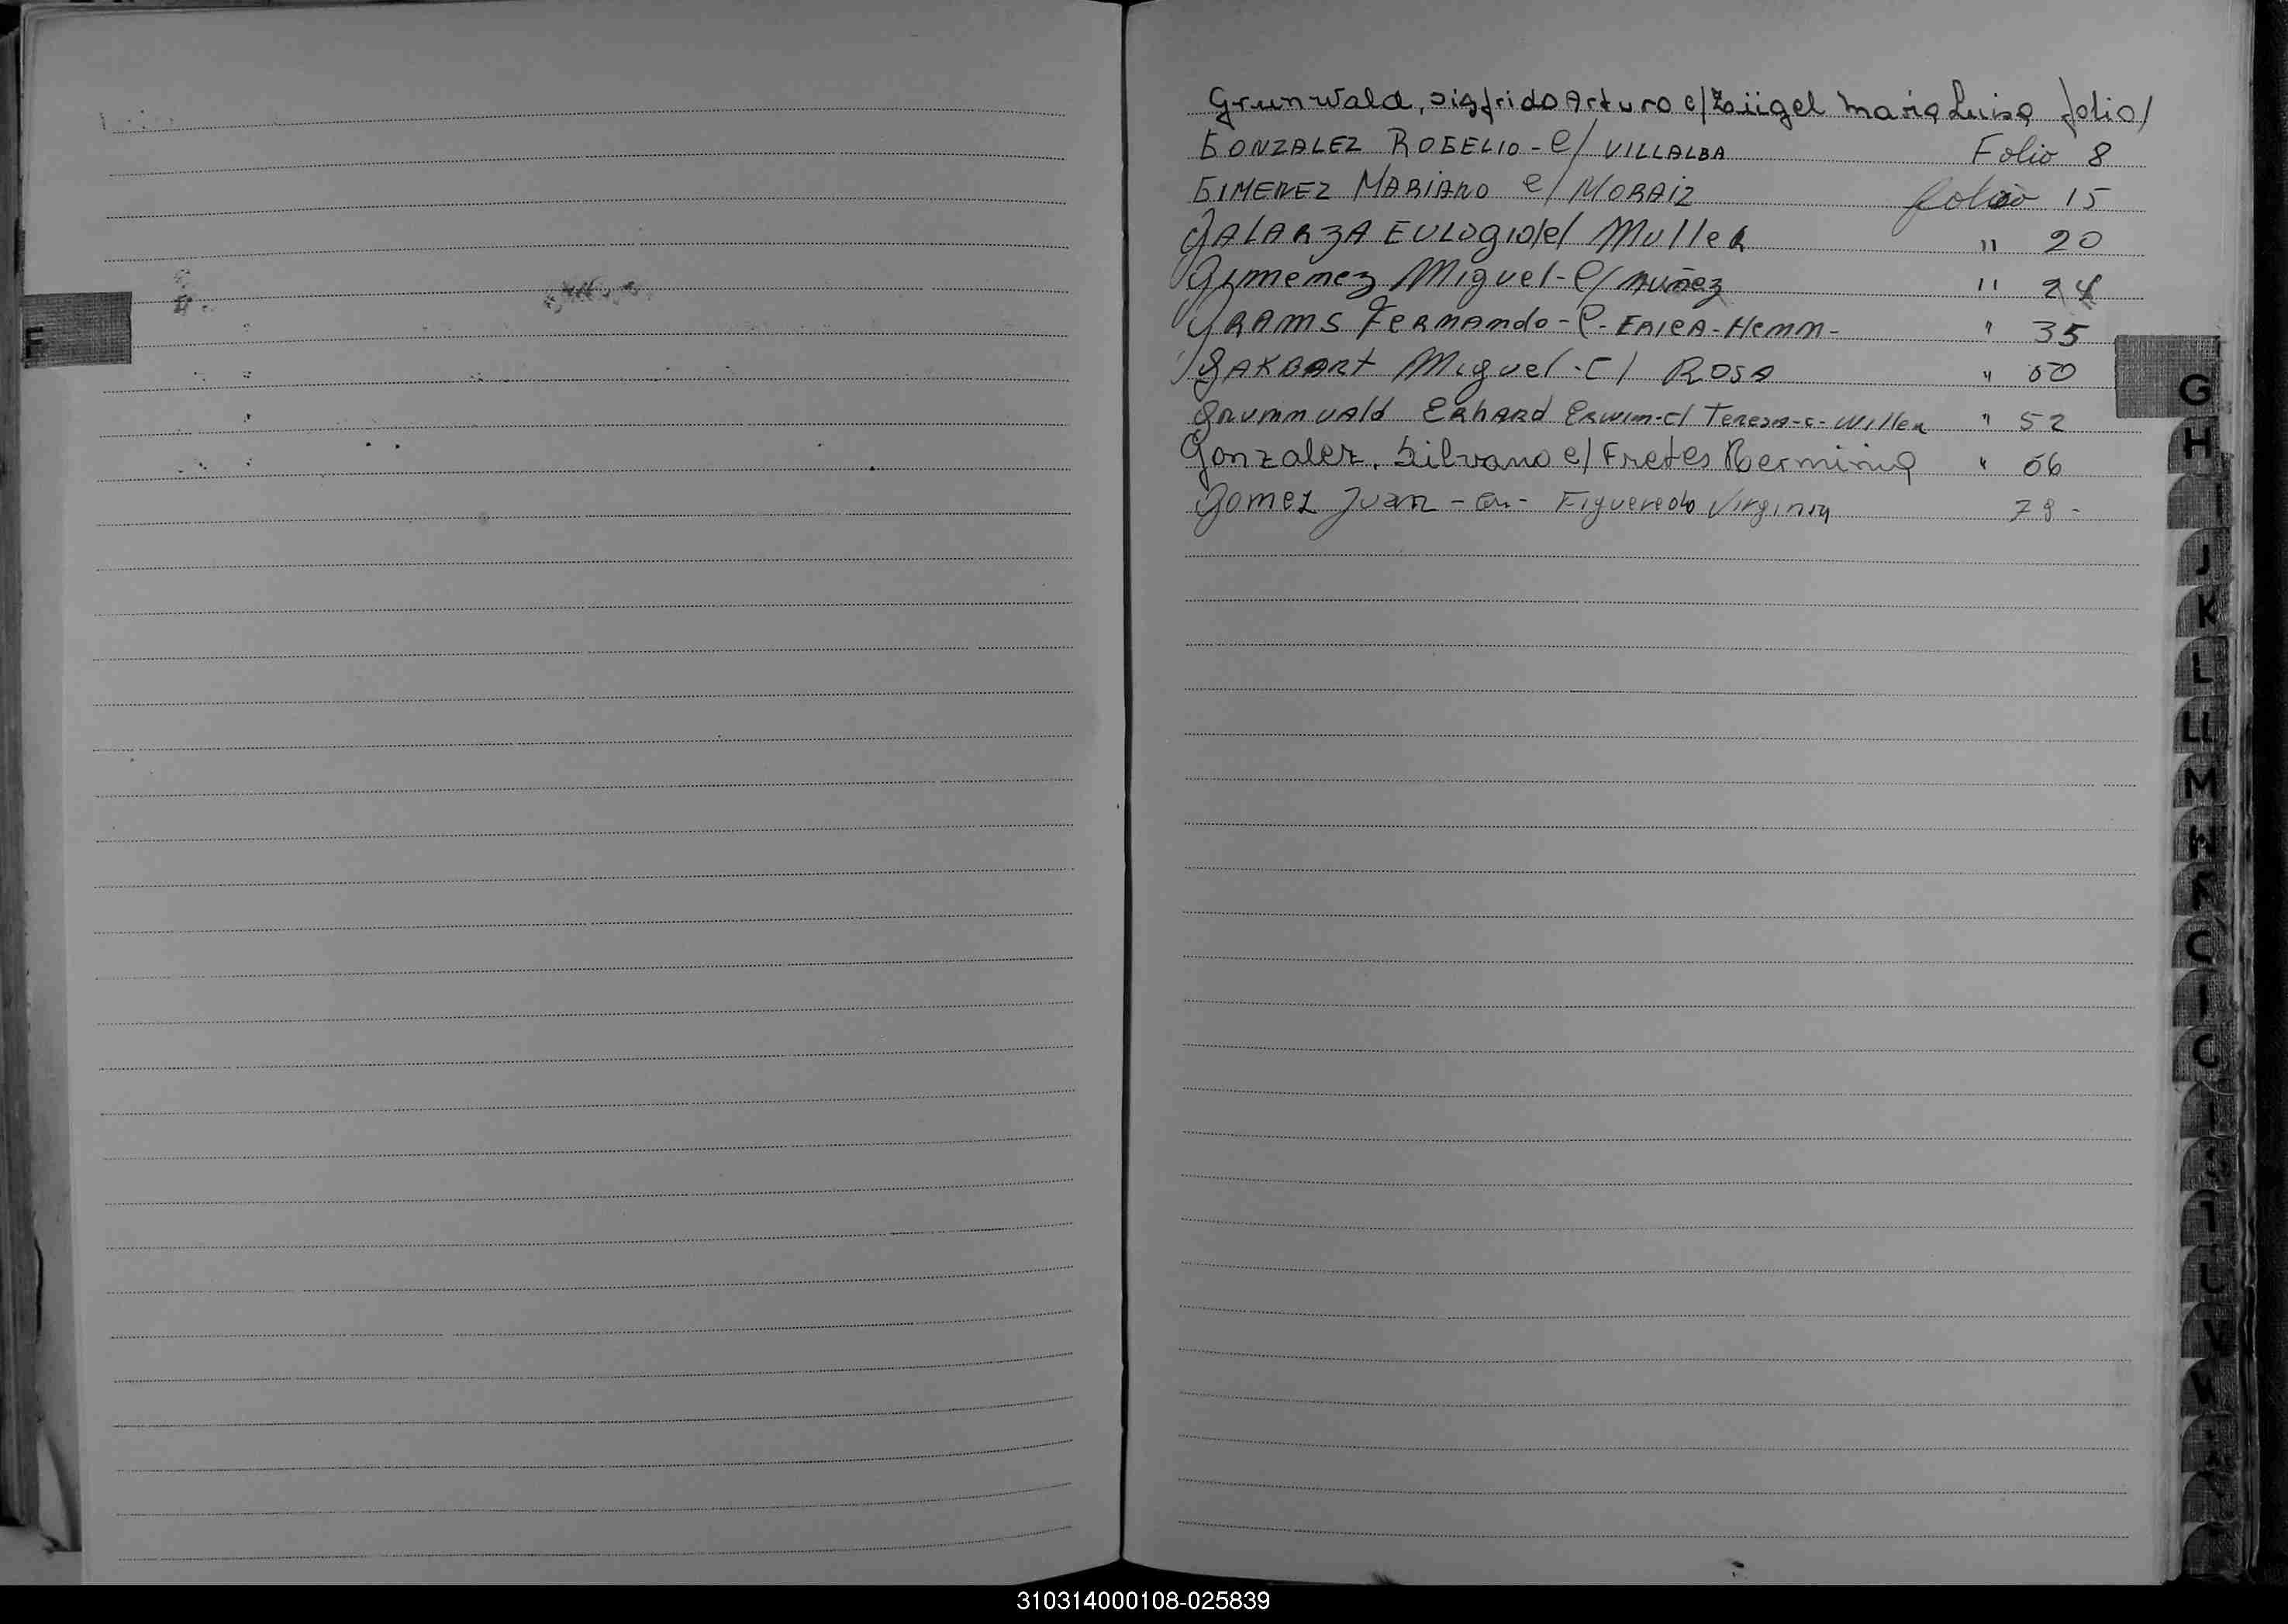 Grunwald, Sigfrido Arturo c/ Züigel Maria Luisa folio 1
GONZALEZ ROGELIO - c/ VILLALBA Folio 8
GIMENEZ MARIANO c/ MORAIZ folio 15
GALARZA EULOGIO c/ Muller " 20
Gimenez Miguel - c/ nuñez " 24
GRAMS Fernando - C. ERICA - Hemm - " 35
GAKBART Miguel - C/ ROSA " 50
Grumnvald Erhard Erwim - c/ Teresa - c - Willer " 52
Gonzalez, Silvano c/ Fretes Herminia " 66
Gomez Juan - con - Figueredo Virginia 79 -
F
G
H
I
J
K
L
LL
M
N
310314000108-025839